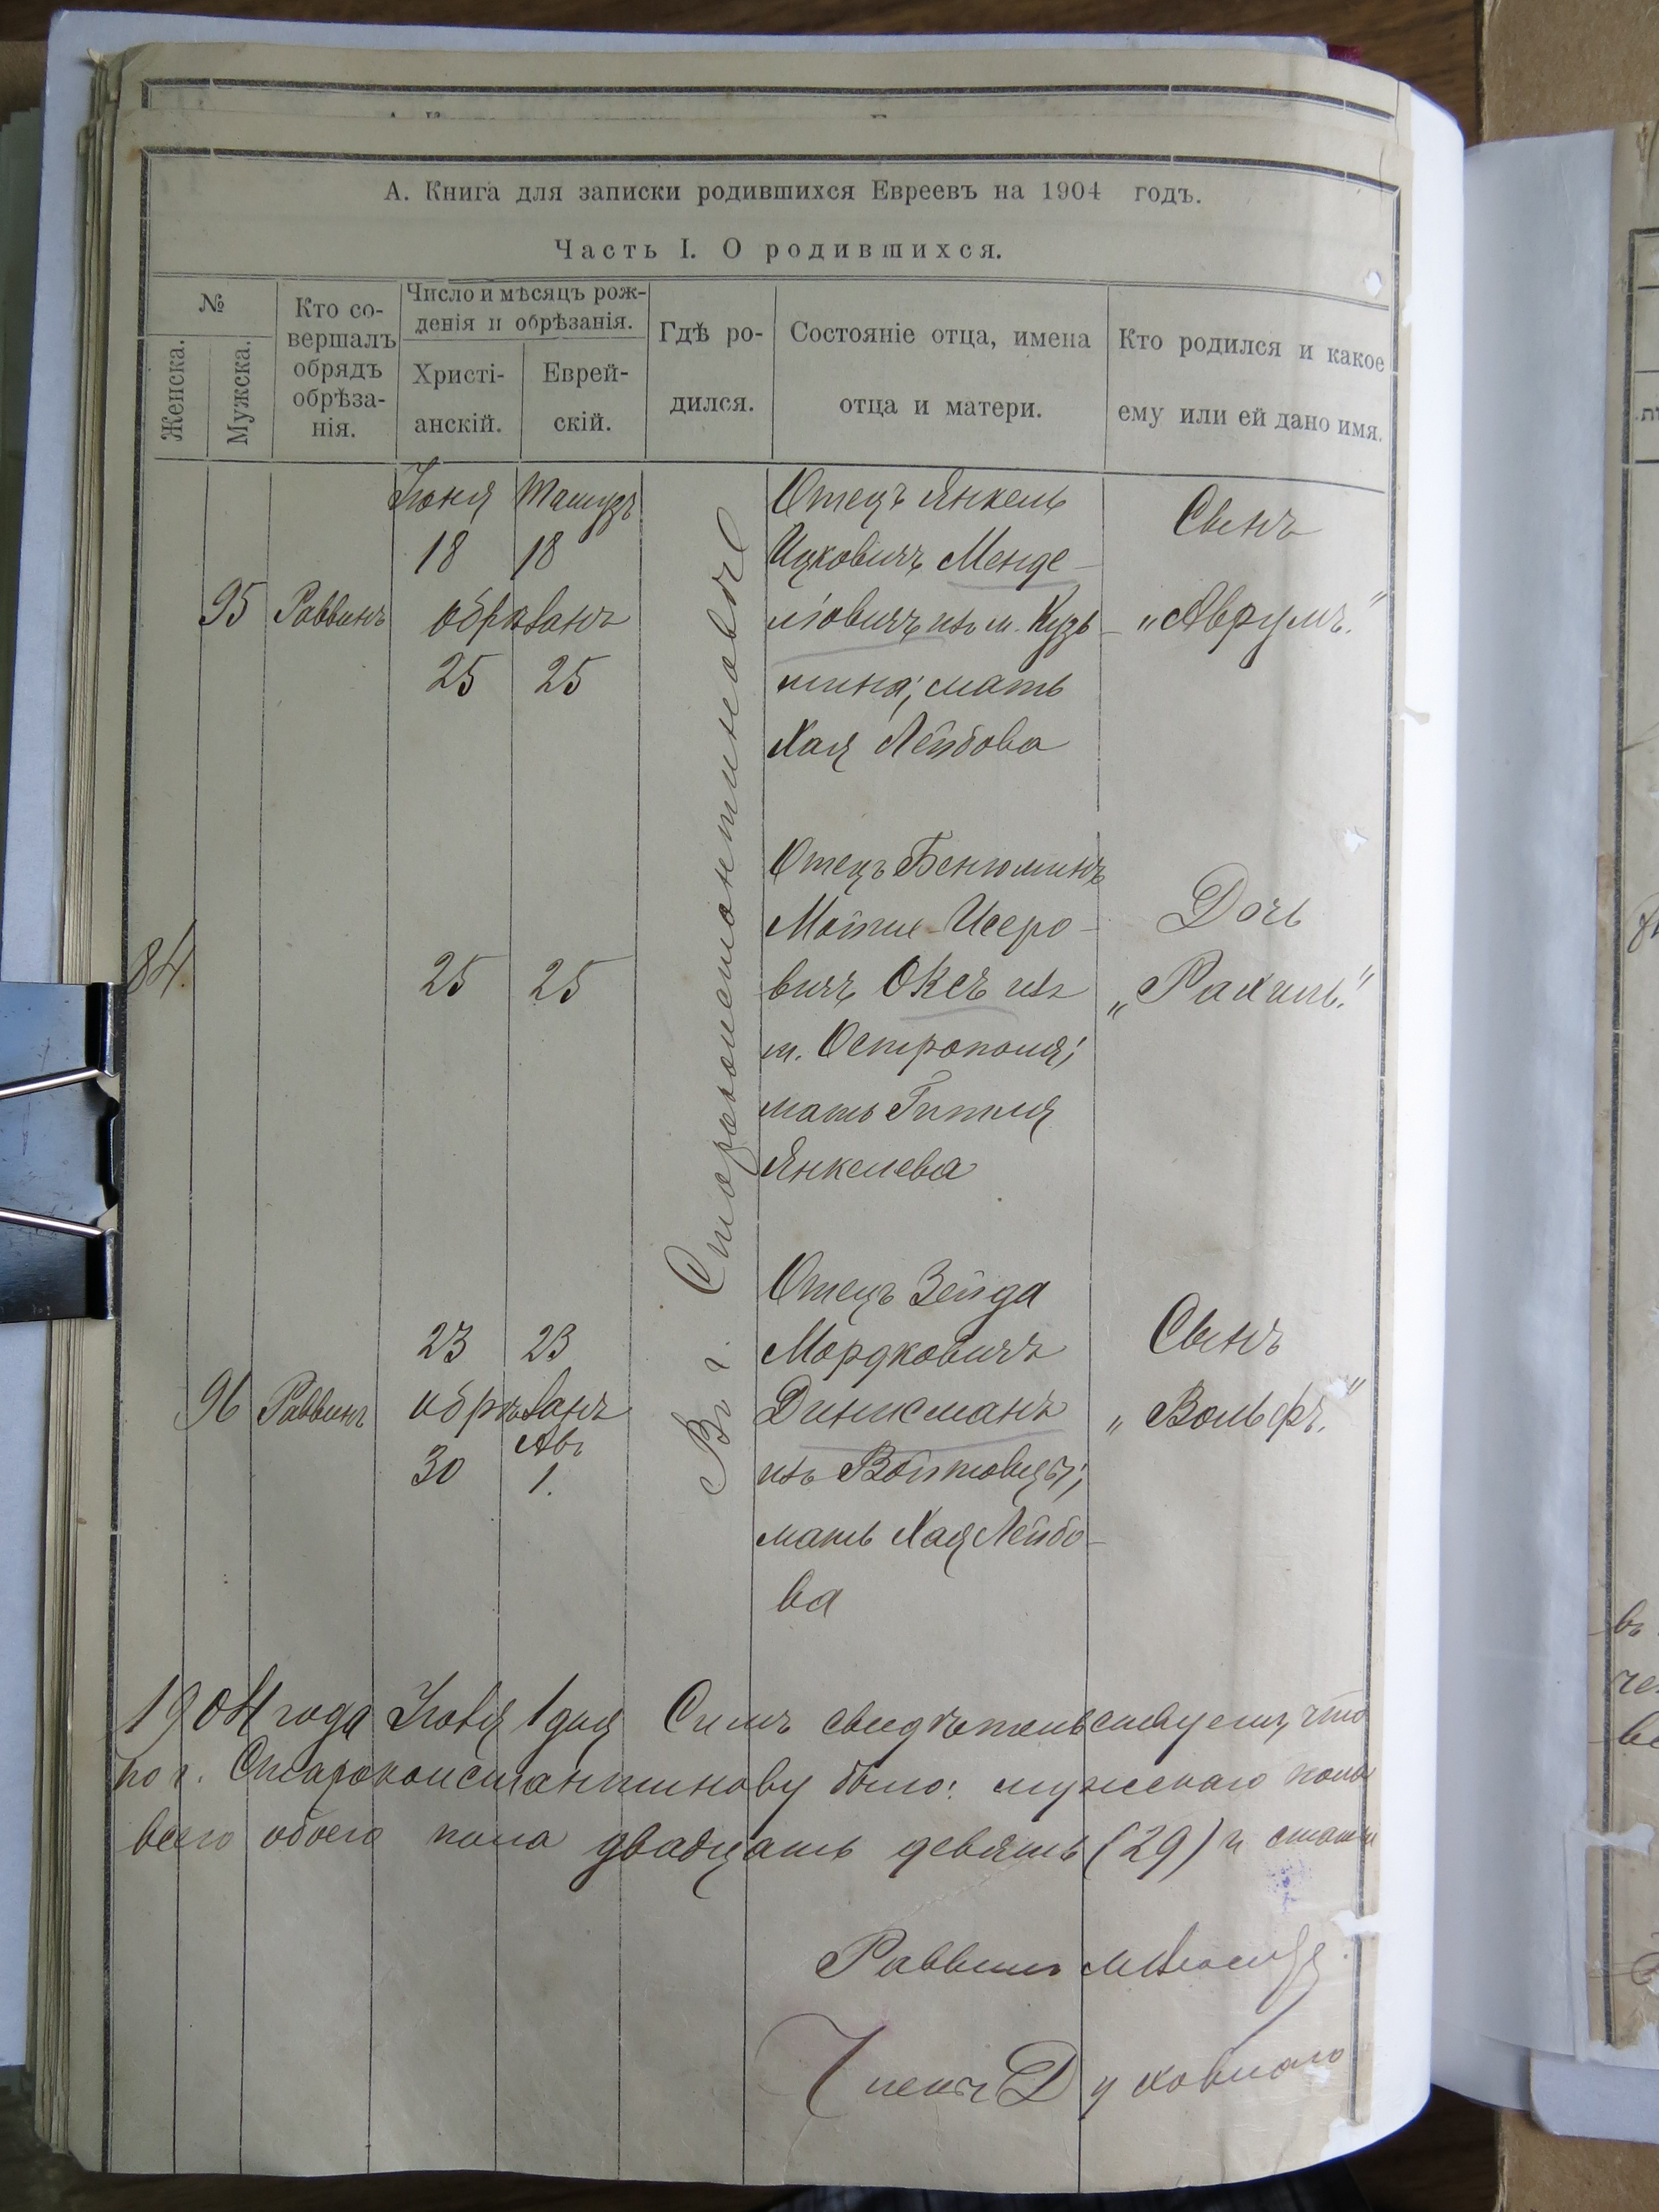 А. Книга для записки родившихся Евреевъ на 1904 годъ.
Часть I. О родившихся.
№
Женска.
Мужска.
Кто со-
вершалъ
обрядъ
обрѣза-
нія.
Число и мѣсяцъ рож-
денія и обрѣзанія.
Христі-
анскій.
Еврей-
скій.
Гдѣ ро-
дился.
Состояніе отца, имена
отца и матери.
Кто родился и какое
ему или ей дано имя.
Въ г. Староконстантиновѣ
95
Раввинъ
Іюня
Тамузъ
18
18
обрѣзанъ
25
25
Отецъ Янкель
Ицковичъ Менде-
левичъ изъ м. Кузь-
мина; мать
Хая Лейбова
Сынъ
„Аврумъ."
84.
25
25
Отецъ Бенюминъ
Мотие-Исеро-
вичъ Оксъ изъ
м. Острополя;
мать Гитля
Янкелева
Дочь
„Рахиль."
96
Раввинъ
23
23
обрѣзанъ
Авъ
30
1.
Отецъ Зейда
Мордковичъ
изъ Войтовцы;
мать Хая Лейбо-
ва
Сынъ
„Вольфъ."
1904 года Іюля 1 дня Симъ свидѣтельствуемъ, что
по г. Староконстантинову было: мужскаго пола
всего обоего пола двадцать девять (29)
Раввинъ
Членъ Духовнаго